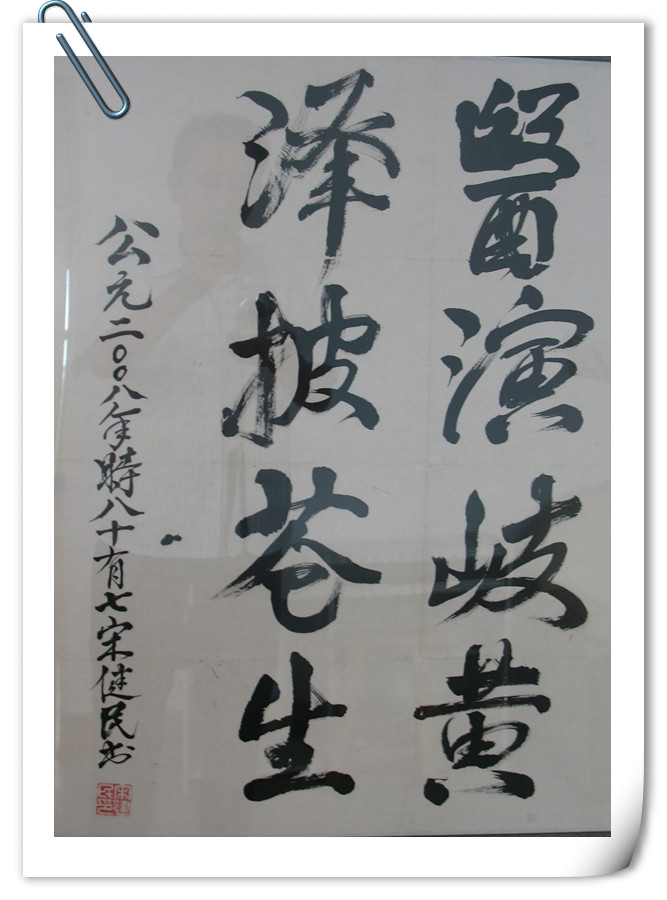 醫演歧黄
泽披苍生
公元二〇〇八年時八十有七宋健民书